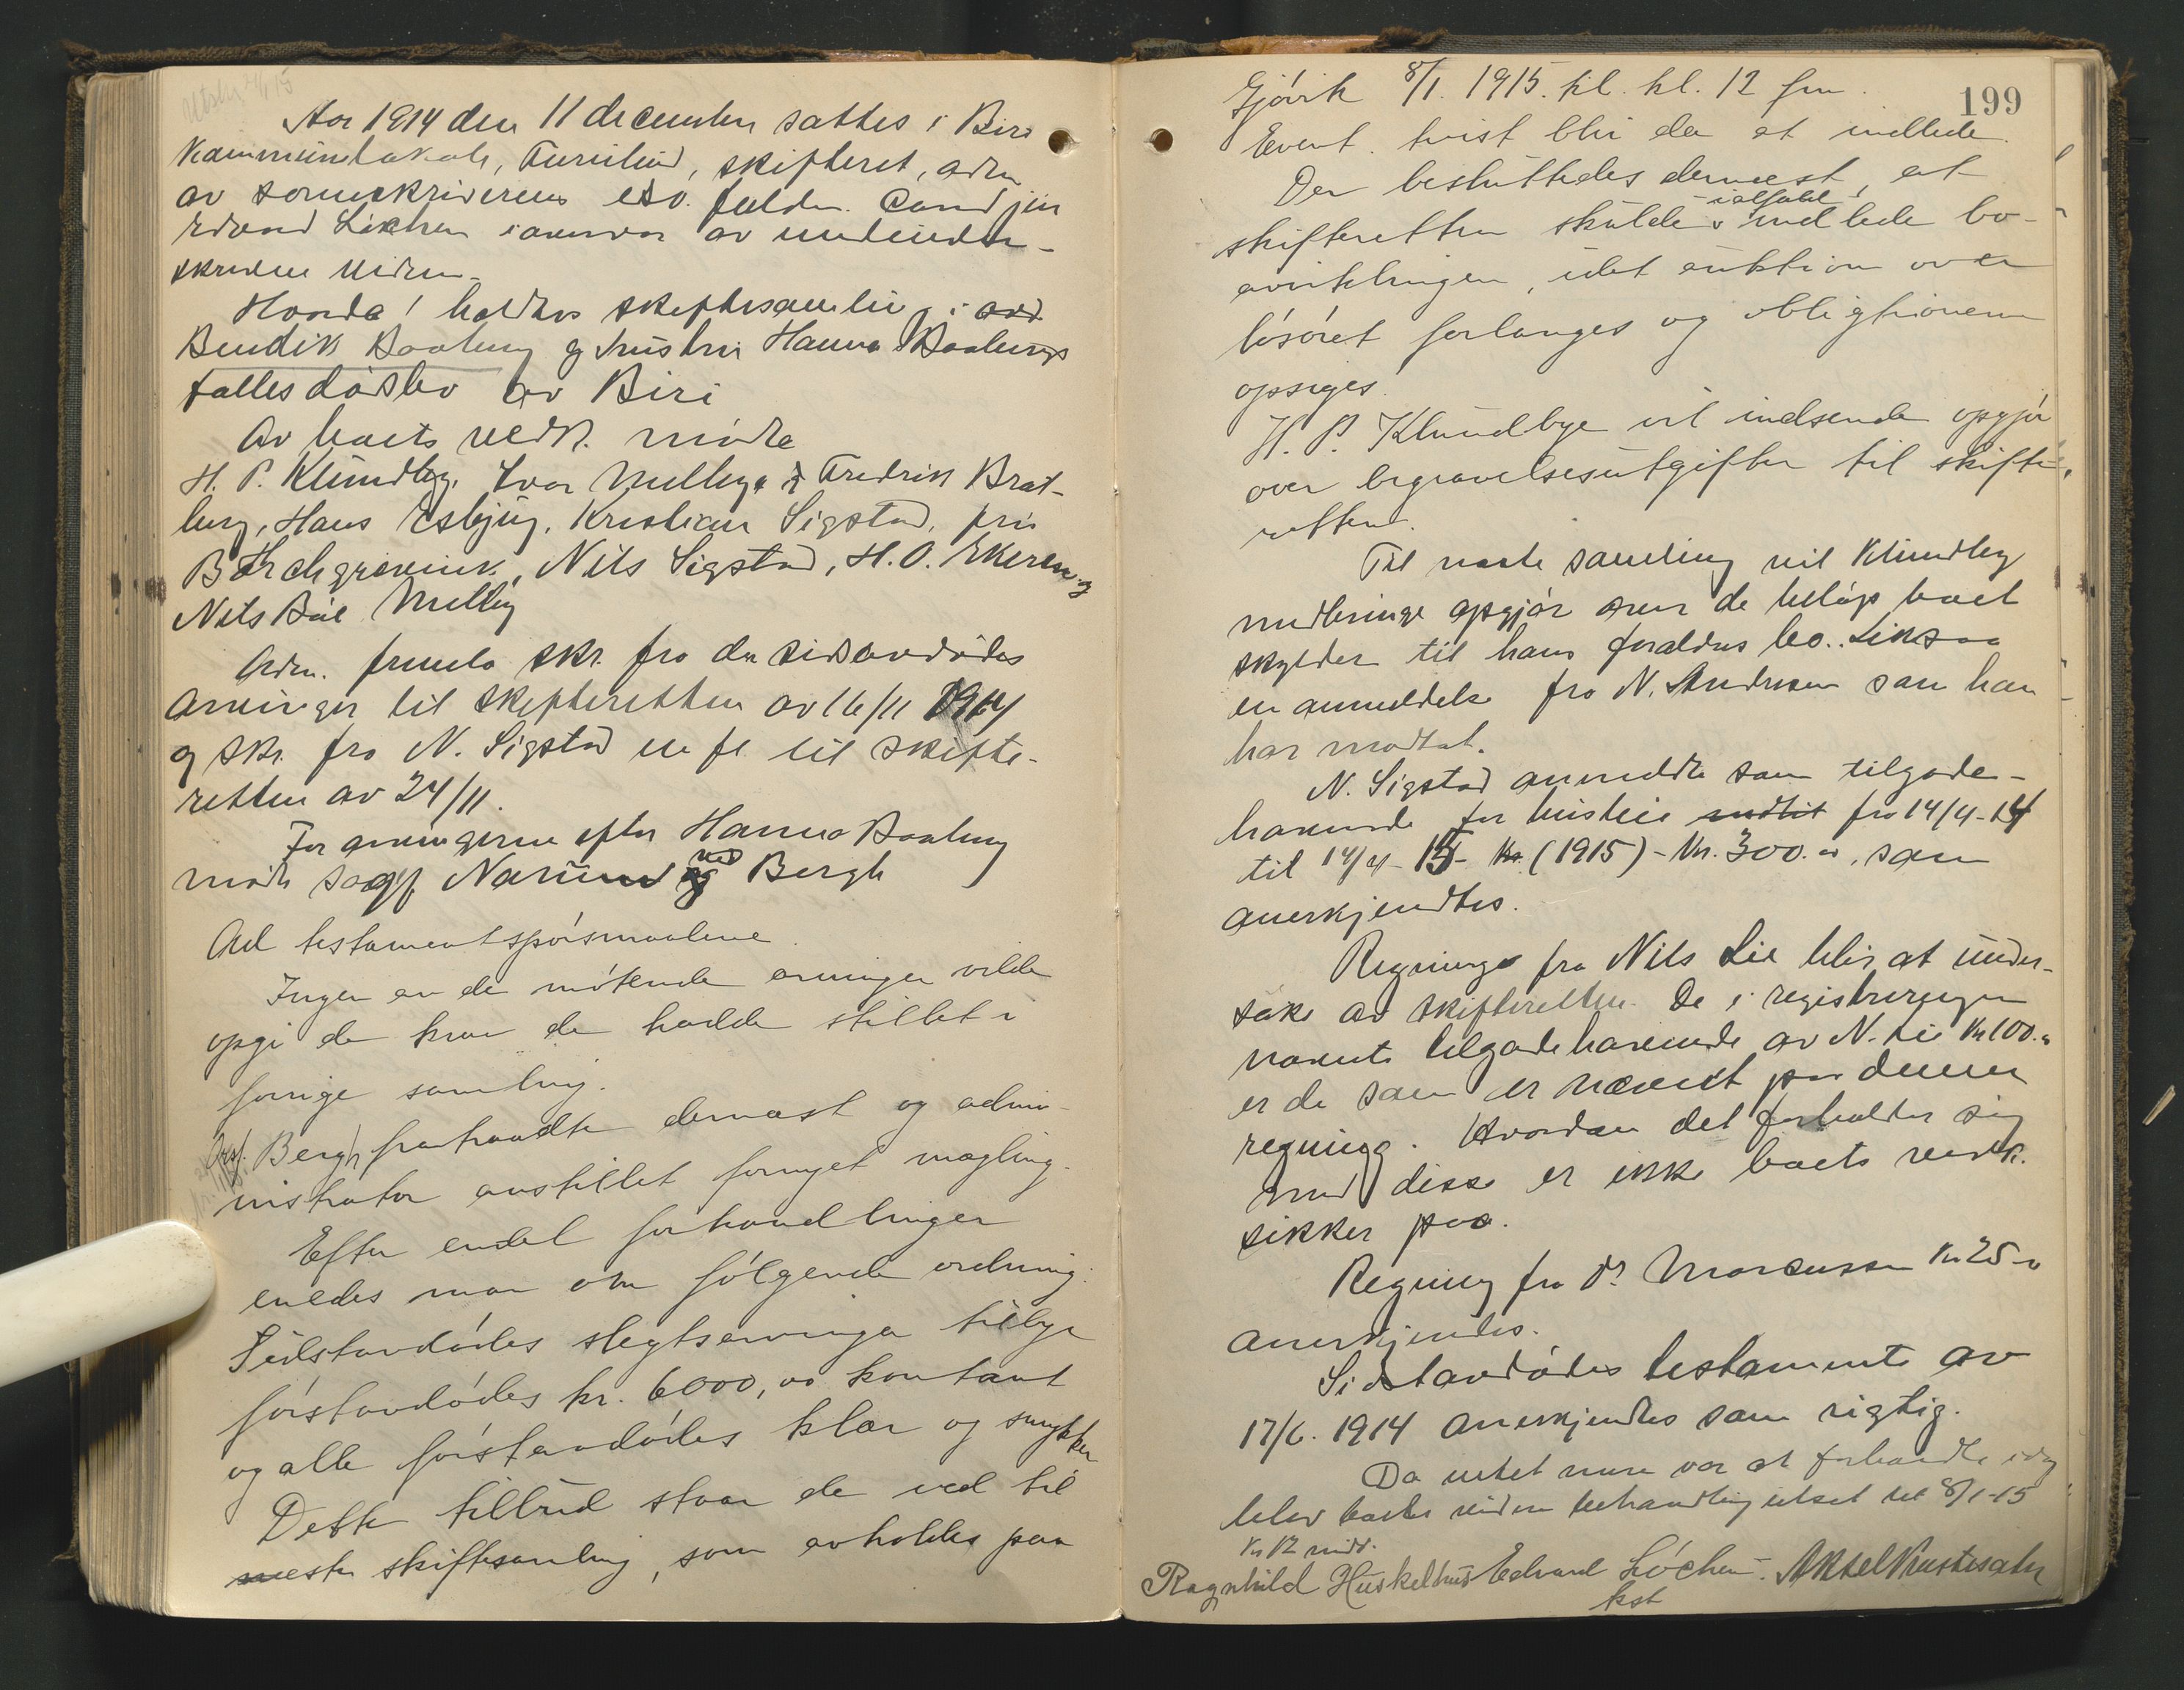 Aar 1914 den 11 december sattes i Biri
Kommunelokale, Furulund, skifteret, adm
av sorenskriverens edsv. fuldm. Cand jur
Edvard Løchen i overvær av undertegn-
skrevne vidner.
Hvorda! holdtes skiftesamling i avd.
Bendik Baaberg og hustru Hanna Baabergs
fælles dødsbo av Biri
Av boets vedk. mødte
H. P. Klundby, Ivar Mellbye og Fredrik Brat-
berg, Hans Esbjug, Kristian Sigstad, fru
Borchgrevink, Nils Sigstad, H. O. Ekeren og
Nils Bøe Mellby
Adm. fremla skr. fra de sidstavdødes
arvinger til skifteretten av 16/11 1914
og skr. fra N. Sigstad m fl til skifte-
retten av 24/11.
For arvingerne efter Hanna Baaberg
mødte sagf. Narum ved Bergh
Ad testamentspørsmaalene
Ingen av de møtende arvinger vilde
opgi de krav de hadde stillet i
forrige samling.
Ors. Bergh forhandlte dernæst og admi-
nistrator anstillet fornyet mægling.
Efter endel forhandlinger
enedes man om følgende ordning:
Sidstavdødes slegtsarvinger tilbyr
førstavdødes kr. 6000,00 kontant
og alle førstavdødes klær og smykker
Dette tilbud staar de ved til
næste skiftesamling, som avholdes paa
199
Gjøvik 8/1. 1915. kl. kl. 12 fm.
Event. tvist blir da at indlede.
Der besluttedes dernæst, at
ialfald
skifteretten skulde indlede bo-
avviklingen, idet auktion over
løsøret forlanges og obligationene
opsiges.
H. P. Klundbye vil indsende opgjør
over begravelsesutgifter til skifte-
retten.
Til næste samling vil Klundby
medbringe opgjør over de beløp boet
skylder til hans forældres bo. Likesaa
en anmeldelse fra N. Andresen som han
har modtat.
N. Sigstad anmeldte som tilgode-
havende for husleie indtil fra 14/4-14
til 14/4-15- Kr. (1915) - Kr. 300.00, som
anerkjendtes.
Regninge fra Nils Lie blir at under-
søke av skifteretten. De i registreringen
nævnte tilgodehavende av N. Lie Kr 100.00
er de som er nævnt paa denne
regning. Hvordan det forholder sig
med disse er ikke boets vedk.
sikker paa.
Regning fra Dr Marcussen Kr 25-00
anerkjendes.
Sidstavdødes testamente av
17/6. 1914 anerkjendtes som rigtig.
Da intet mere var at forhandle idag
blev boets videre behandling utsat til 8/1-15
Kl 12 midd.
Ragnhild Huskelhus Edvard Løchen. Aksel
kst